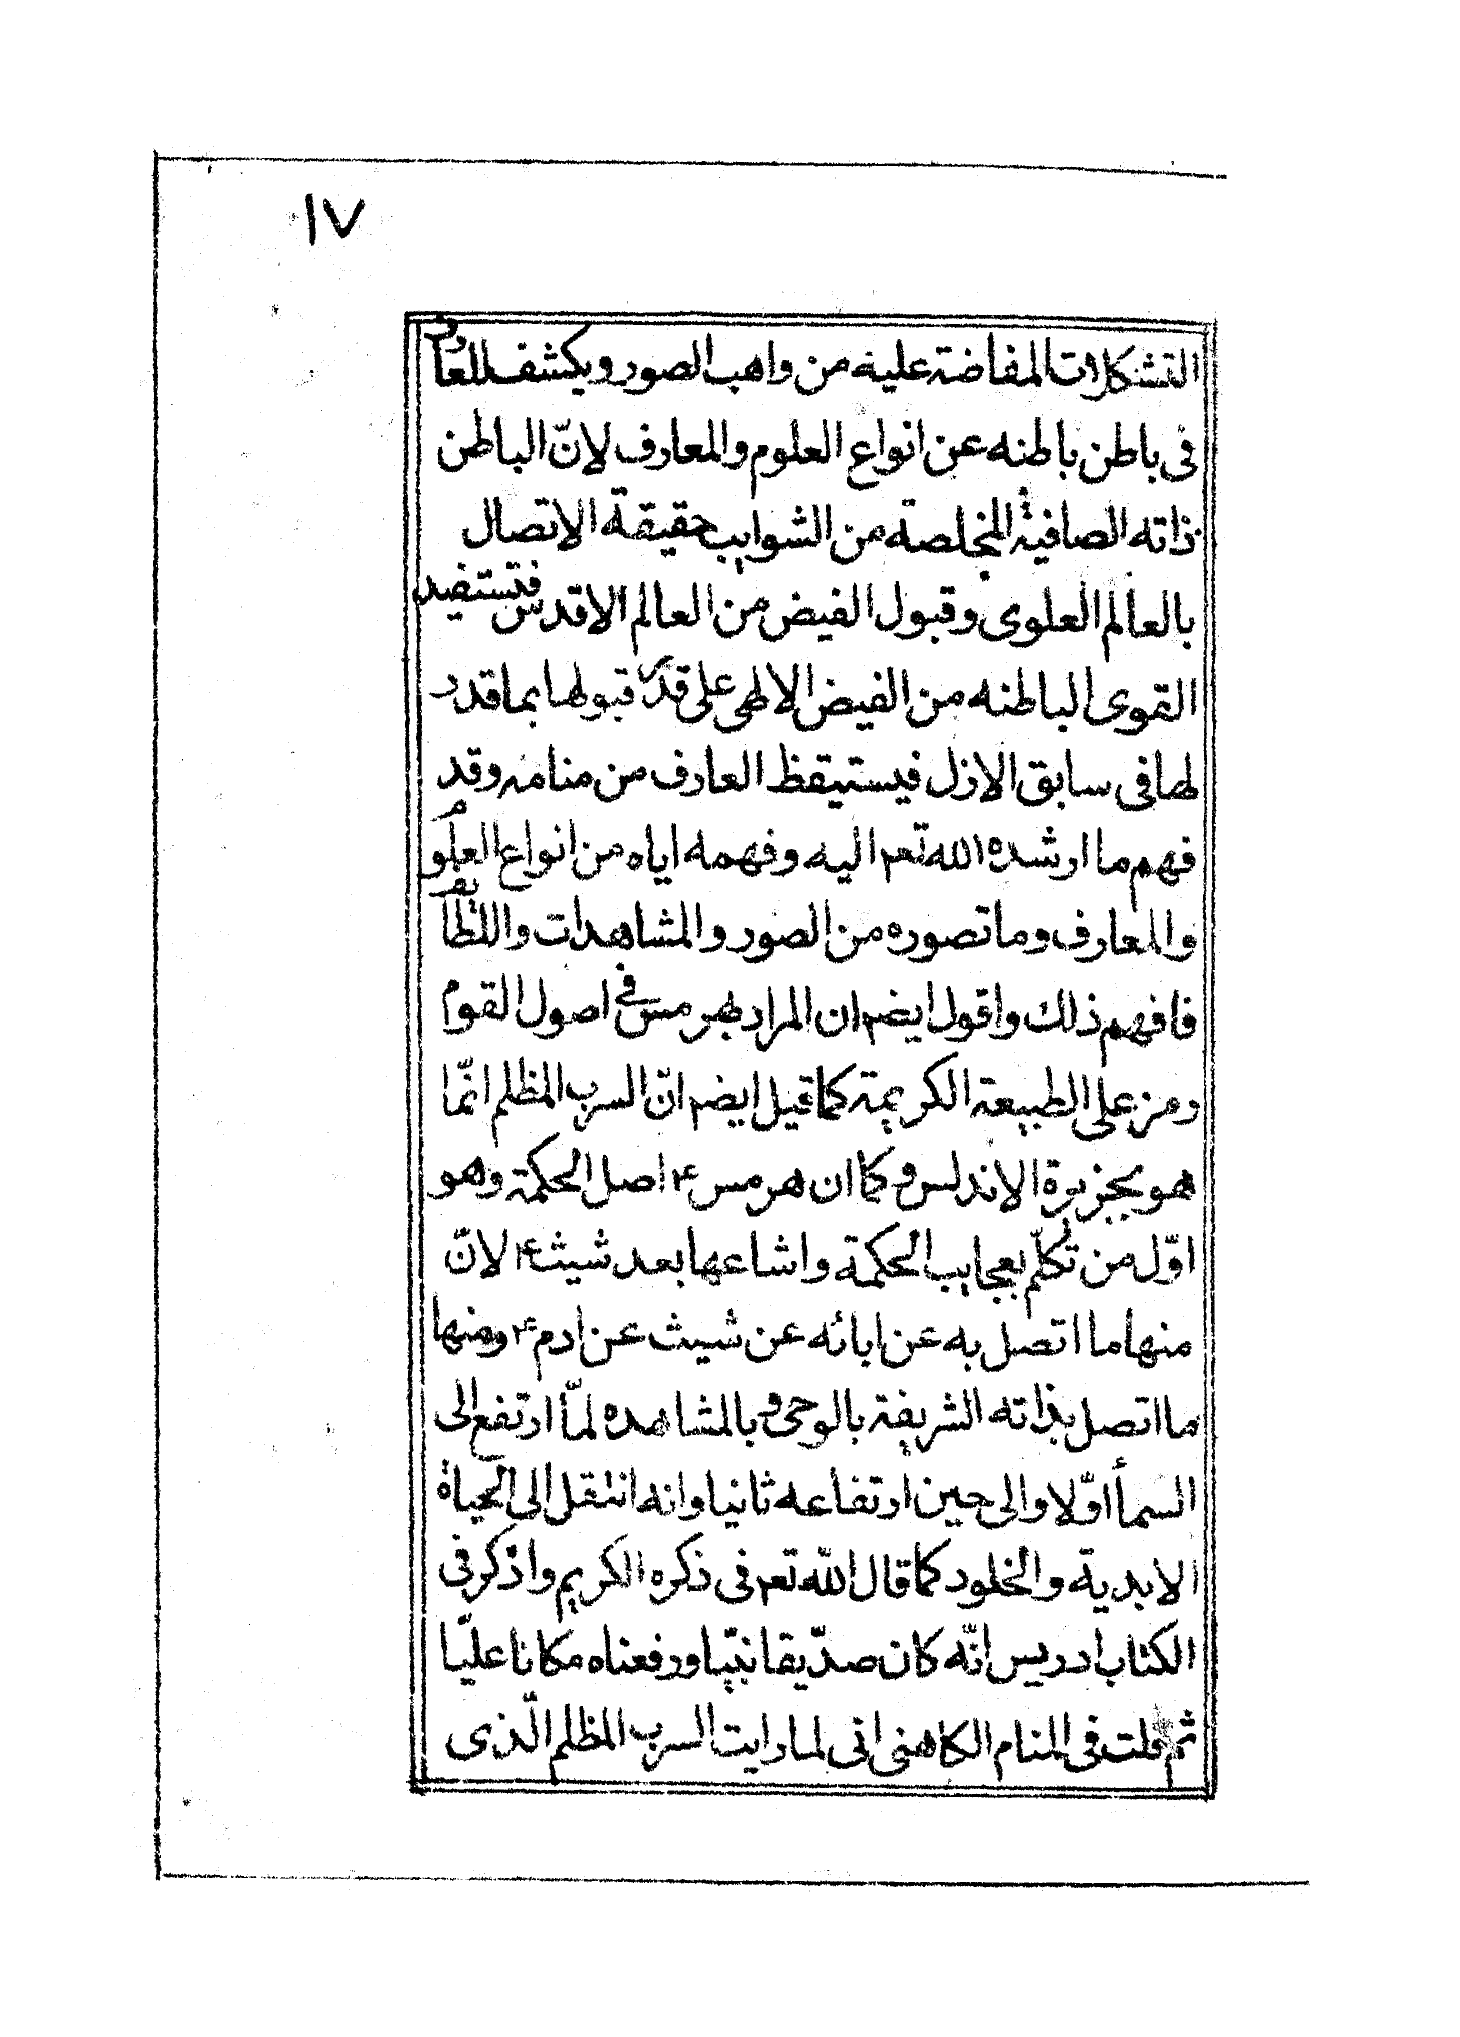 ١٧
التشكلات المفاضة عليه من واهب الصور ويكشف للعارف
فى باطن باطنه عن انواع العلوم والمعارف لانّ الباطن
ذاته الصافية المخلصة من الشوايب حقيقة الاتصال
بالعالم العلوى وقبول الفيض من العالم الاقدس فتستفيد
القوى الباطنه من الفيض الالهى على قدر قبولها بما قدر
لها فى سابق الازل فيستيقظ العارف من منامه وقد
فهم ما ارشده الله تعم اليه وفهمه اياه من انواع العلوم
والمعارف وما تصوره من الصور والمشاهدات واللطايف
فافهم ذلك واقول ايضم ان المراد بهرمس فى اصول القوم
رمز على الطبيعة الكريمة كما قيل ايضم انّ السرب المظلم انّما
هو بجزيرة الاندلس وكما ان هرمس ۴ اصل الحكمة وهو
اوّل من تكلّم بعجايب الحكمة واشاعها بعد شيث ۴ا لانّ
منها ما اتصل به عن ابائه عن شيث عن ادم ۴ ومنها
ما اتصل بذاته الشريفة بالوحى وبالمشاهده لمّا ارتفع الى
السمأ اوّلا والى حين ارتفاعه ثانيا وانه انتقل الى الحياة
الابدية والخلود كما قال الله تعم فى ذكره الكريم واذكر فى
الكتاب ادريس انّه كان صدّيقا نبيّا ورفعناه مكانا عليّا
ثم قلت فى المنام الكاهنى انى لما رايت السرب المظلم الّذى